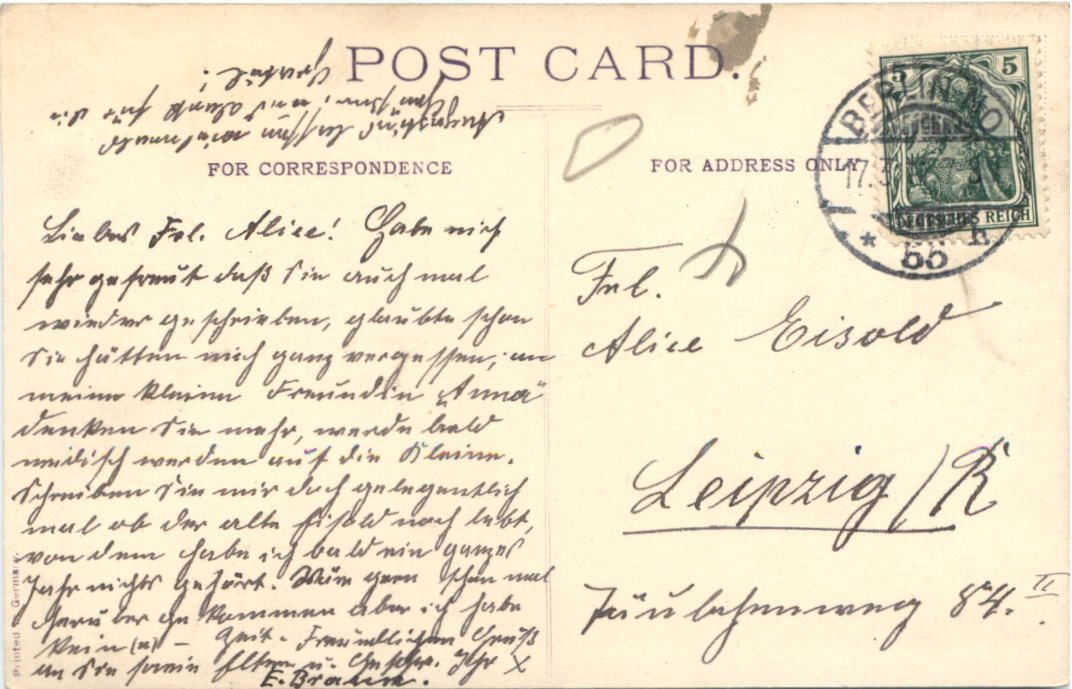 POST CARD.
FOR CORRESPONDENCE
FOR ADDRESS ONLY
5 5
DEUTSCHES REICH
BERLIN NO
17.3
* 55 *
Liebes Frl. Alice! Habe mich
sehr gefreut daß Sie auch mal
wieder geschrieben, glaubte schon
Sie hätten mich ganz vergessen, an
meine kleine Freundin „Anna“
denken Sie mehr, werde bald
neidisch werden auf die Kleine.
Schreiben Sie mir doch gelegentlich
mal ob der alte Eisold noch lebt,
von dem habe ich bald ein ganzes
Jahr nichts gehört. Wäre gern schon mal
herüber gekommen aber ich habe
kein(e) – Zeit. Freundlichen Gruß
an Sie sowie Eltern u. Geschw. Ihr X
E. Braun.
Frl.
Alice Eisold
Leipzig/R
Täubchenweg 84. II
Printed Germany